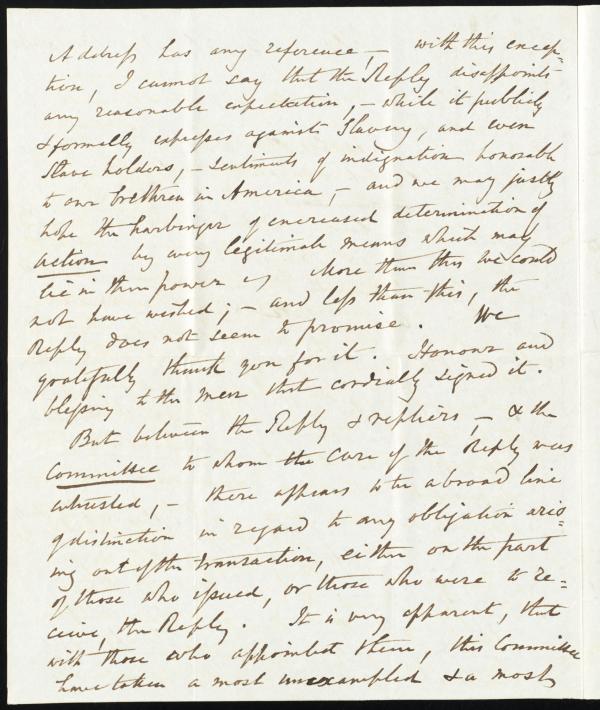 Address has any reference, — with this excep-
tion, I cannot say that the Reply disappoints
any reasonable expectation, — while it publicly
& formally expresses against Slavery, and even
Slave holders, — sentiments of indignation honorable
to our brethren in America, — and we may justly
hope the harbinger of encreased determination of
action by every legitimate means which may
lie in their power. More than this we could
not have wished; — and less than this, the
Reply does not seem to promise. We
gratefully thank you for it. Honour and
blessing to the men that cordially signed it.
But between the Reply & repliers, — & the
Committee to whom the care of the Reply was
intrusted, — there appears to be a broad line
of distinction in regard to any obligation aris-
ing out of the transaction, either on the part
of those who issued, or those who were to re-
ceive, the Reply. It is very apparent, that
with those who appointed them, this Committee
have taken a most unexampled & a most